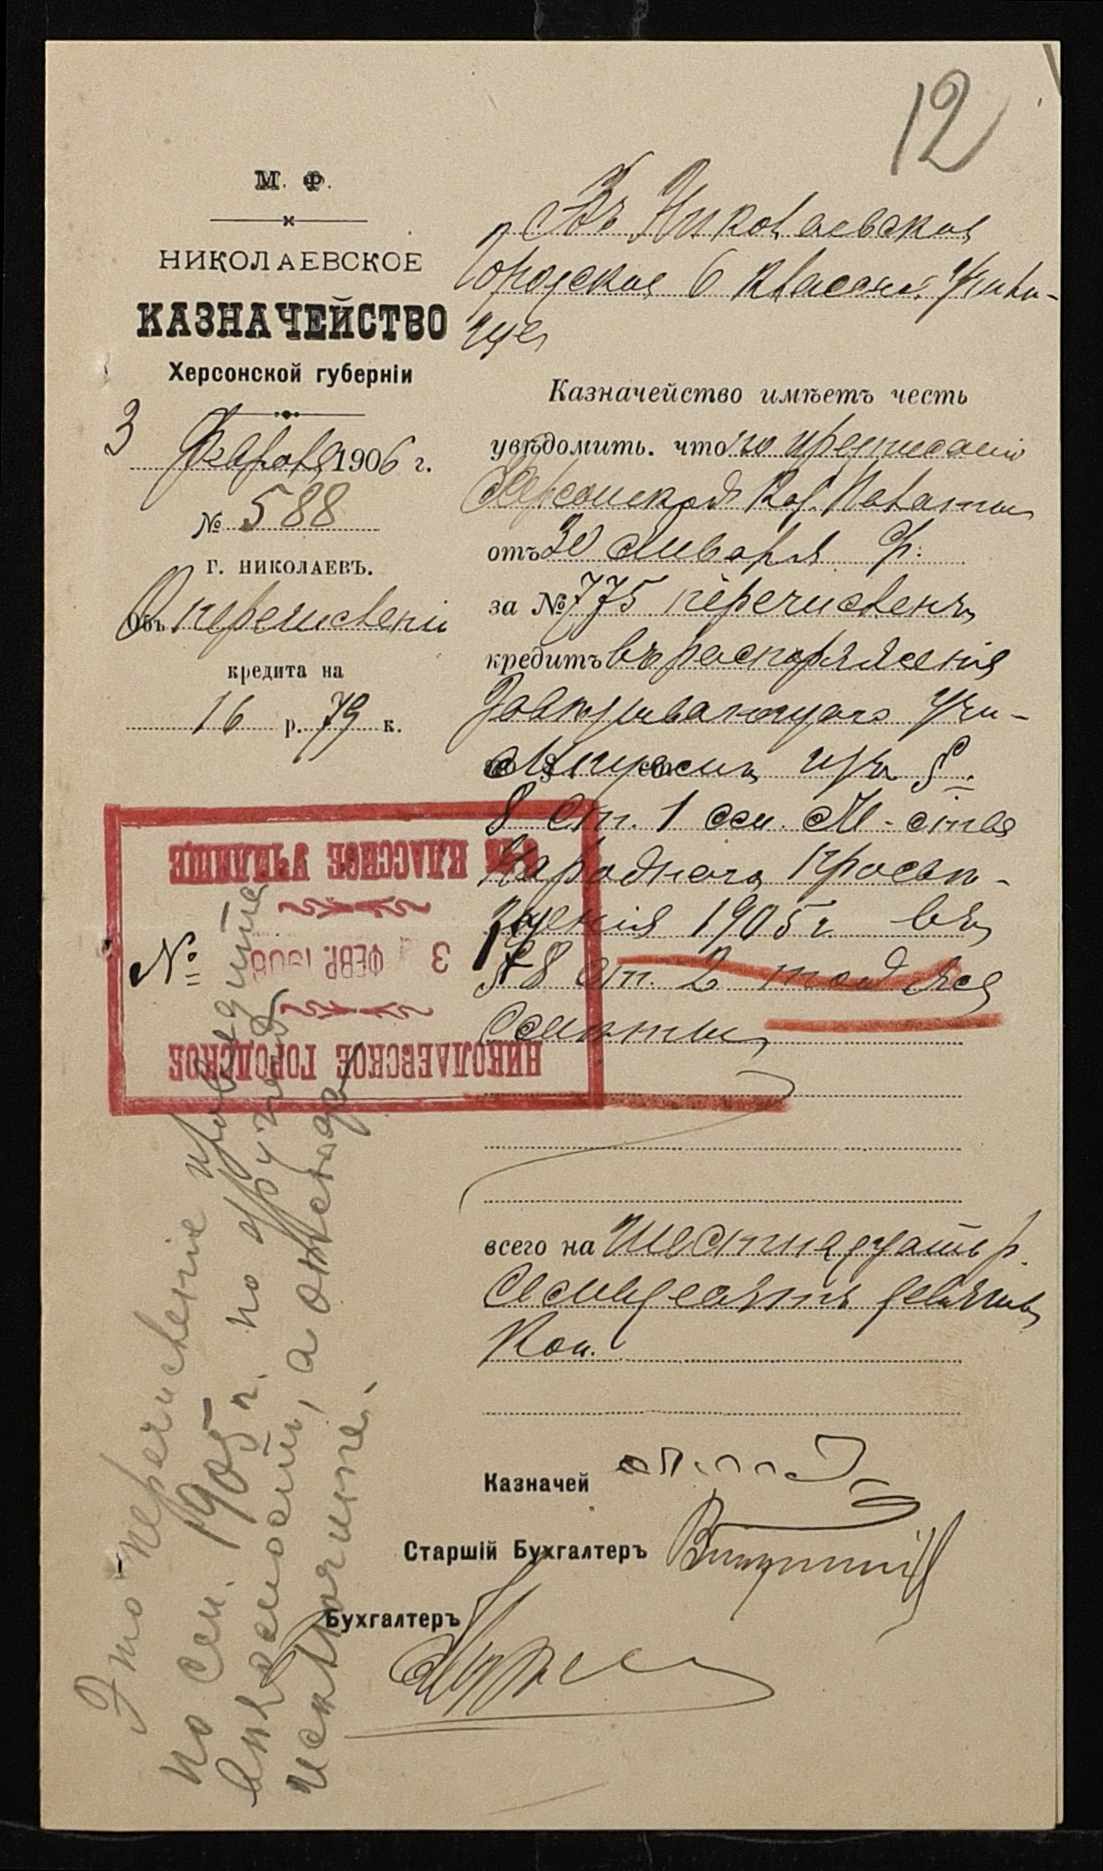 12
М. Ф.
НИКОЛАЕВСКОЕ
КАЗНАЧЕЙСТВО
Херсонской губерніи
3 Февраля 1906 г.
№ 588
Г. НИКОЛАЕВЪ.
О перечисленіи
кредита на
16 р. 79 к.
Въ Николаевское
Городское 6 классное Учили-
ще
Казначейство имѣетъ честь
увѣдомить, что по предписанію
Херсонской Каз. Палаты
отъ 30 Января
за № 775 перечисленъ
кредитъ въ распоряженіе
Завѣдывающаго Учи-
лищемъ изъ §
8 ст. 1 см. М-ства
Народнаго Просвѣ-
щенія 1905 г. въ
§ 8 ст. 2 той же
смѣты
всего на Шестнадцать р.
Семьдесятъ девять
Коп.
Казначей
Старшій Бухгалтеръ
Бухгалтеръ
НИКОЛАЕВСКОЕ ГОРОДСКОЕ
3 ФЕВР. 1906
№
КЛАССНОЕ УЧИЛИЩЕ
Это перечисленіе проведите
по см. 1905 г. по другой
вѣдомости, а отсюда
исключите.